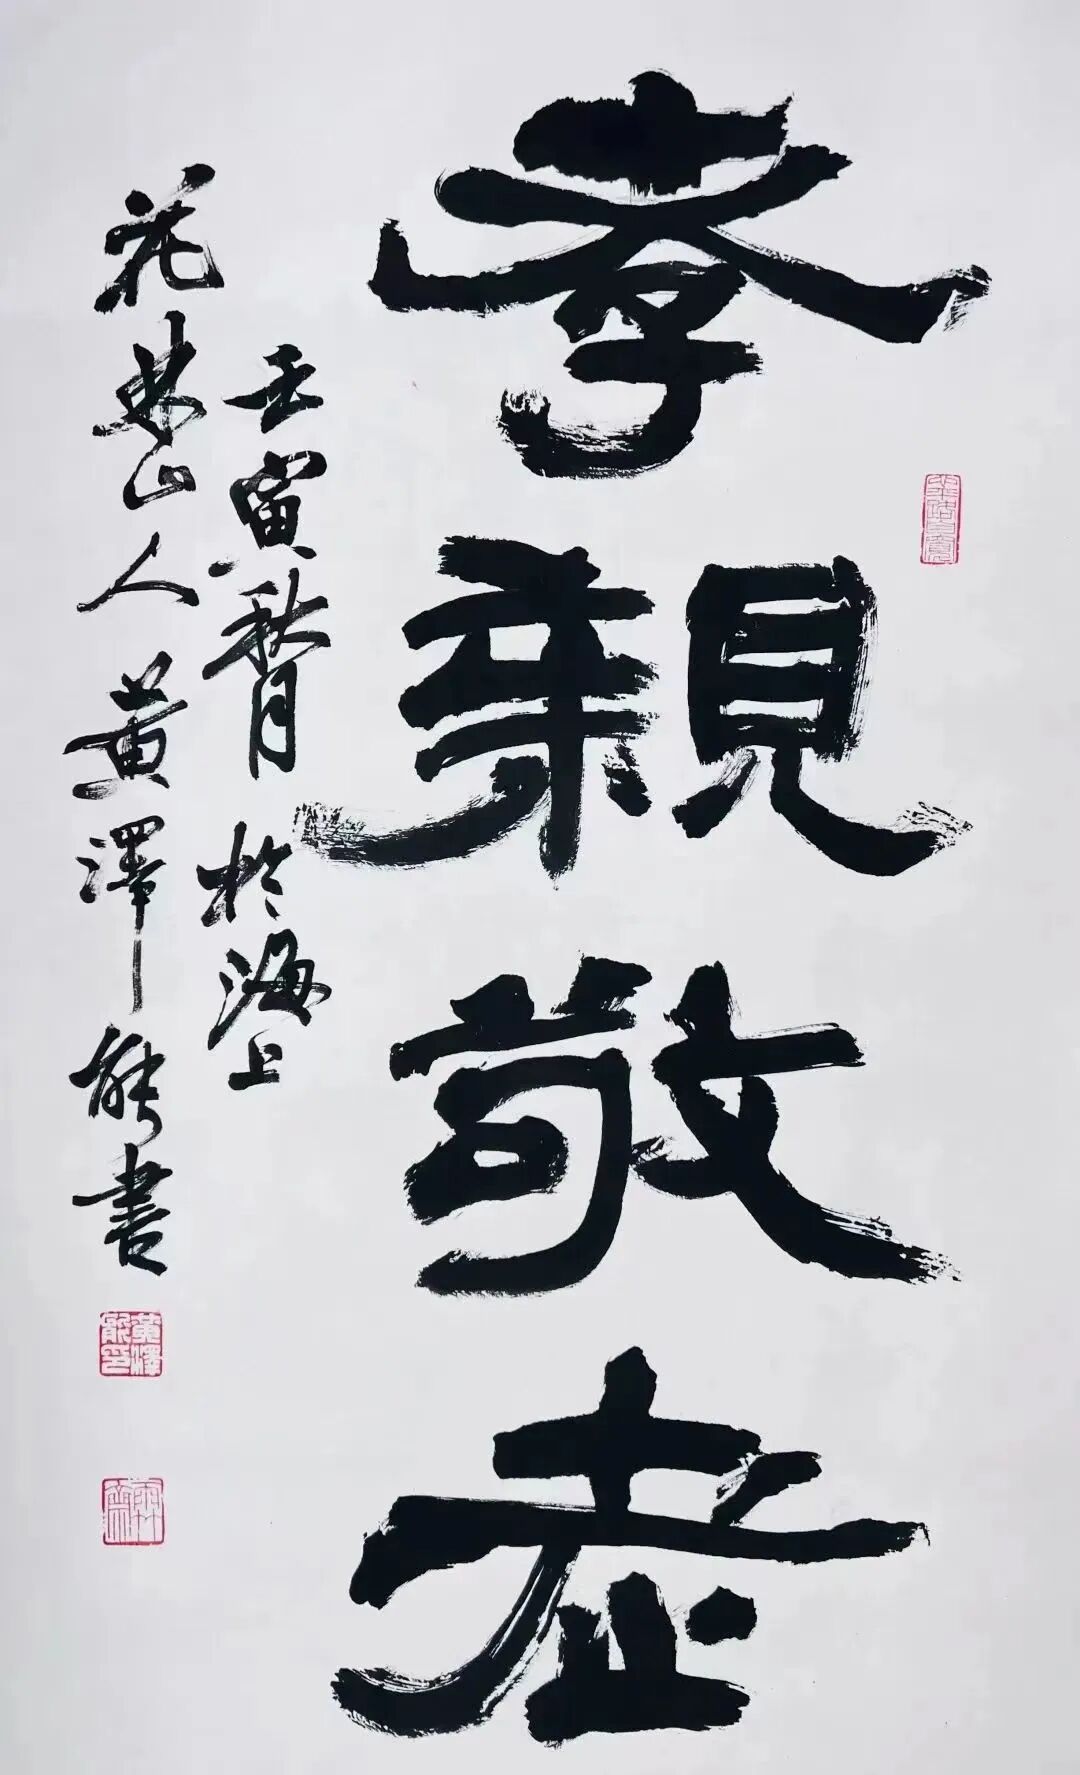 孝親敬老
壬寅秋月於海上
花果山人黃澤能書
黃澤能印